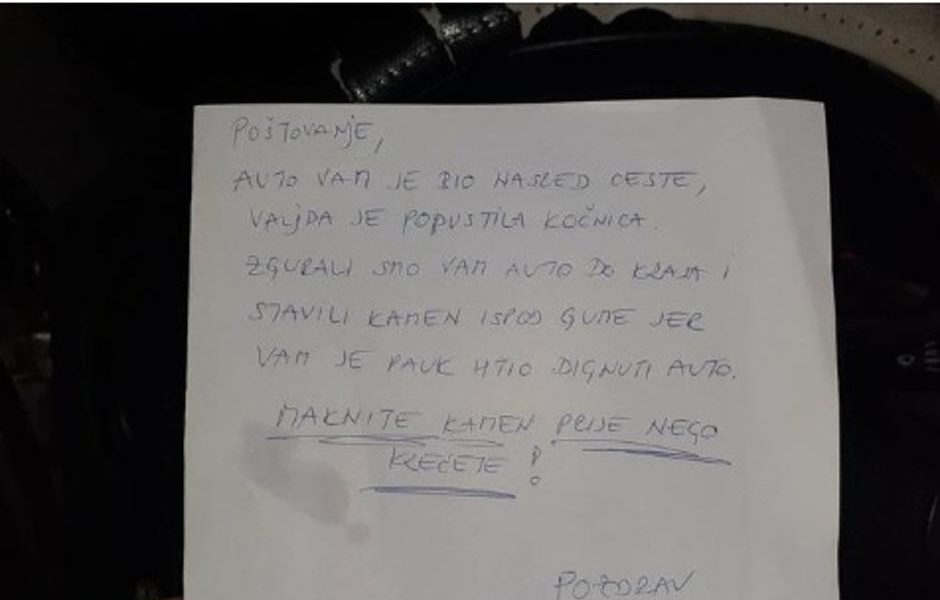 POŠTOVANJE,
AUTO VAM JE BIO NASRED CESTE,
VALJDA JE POPUSTILA KOČNICA.
ZGURALI SMO VAM AUTO DO KRAJA I
STAVILI KAMEN ISPOD GUME JER
VAM JE PAUK HTIO DIGNUTI AUTO.
MAKNITE KAMEN PRIJE NEGO
KREĆETE !
POZDRAV